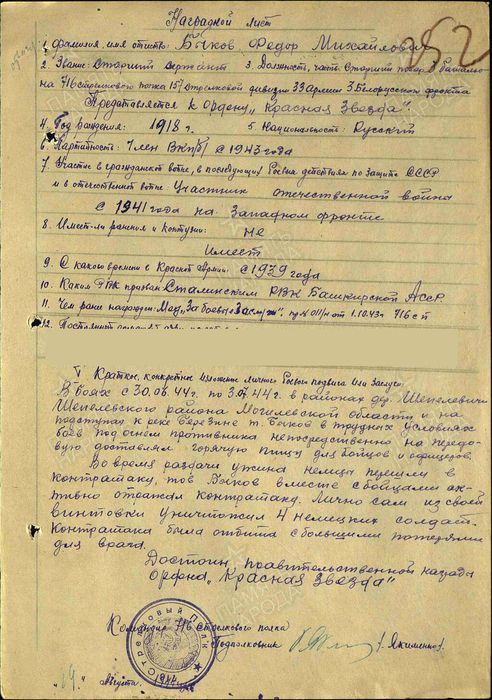 Наградной лист
252
1. Фамилия, имя отчество: Быков Федор Михайлович
2. Звание старший сержант 3. Должность, часть старший повар 3 батальо-
на 716 стрелкового полка 157 стрелковой дивизии 33 Армии 3 Белорусского фронта
Представляется к ордену „Красная Звезда".
4. Год рождения: 1918 г. 5. Национальность: Русский
6. Партийность: Член ВКП/б/ с 1943 года
7. Участие в гражданской войне, в последующих боевых действиях по защите СССР
и в отечественной войне Участник отечественной войны
с 1941 года на Западном фронте
8. Имеет-ли ранения и контузии: не
имеет
9. С какого времени в Красной Армии: с 1939 года
10. Каким РВК призван Сталинским РВК Башкирской АССР.
11. Чем ранее награжден: Мед. „За боевые заслуги" пр. 011/н от 1.10.43г 716 сп
12. Постоянный
I Краткое, конкретное изложение личного боевого подвига или заслуг:
В боях с 30.06.44г. по 3.07.44г. в районах дер. Шепелевичи
Шепелевского района Могилевской области и на
подступах к реке Березине т. Быков в трудных условиях
боев под огнем противника непосредственно на передо-
вую доставлял горячую пищу для бойцов и офицеров.
Во время раздачи ужина немцы перешли в
контратаку, тов Быков вместе с бойцами ак-
тивно отражал контратаку. Лично сам из своей
винтовки уничтожил 4 немецких солдат.
Контратака была отбита с большими потерями
для врага.
Достоин правительственной награды
ордена „Красная Звезда"
Командир 716 стрелкового полка
Подполковник /Якименко/
Стрелковый Полк
августа 1944